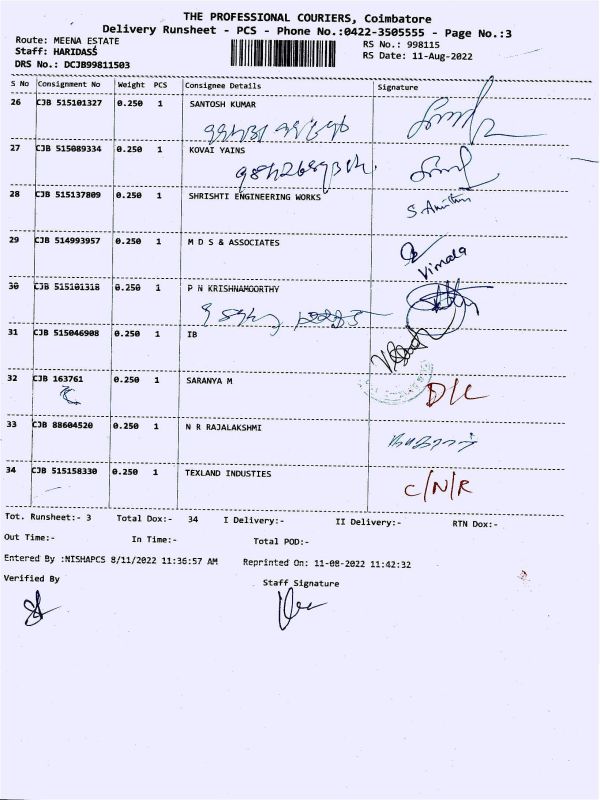 THE PROFESSIONAL COURIERS, Coimbatore
Delivery Runsheet - PCS - Phone No.:0422-3505555 - Page No.:3
Route: MEENA ESTATE
RS No.: 998115
Staff: HARIDASS
RS Date: 11-Aug-2022
DRS No.: DCJB99811503
S No Consignment No Weight PCS Consignee Details Signature
26 CJB 515101327 0.250 1 SANTOSH KUMAR
27 CJB 515089334 0.250 1 KOVAI YAINS
28 CJB 515137809 0.250 1 SHRISHTI ENGINEERING WORKS
29 CJB 514993957 0.250 1 M D S & ASSOCIATES
Vimala
30 CJB 515101318 0.250 1 P N KRISHNAMOORTHY
31 CJB 515046908 0.250 1 IB
32 CJB 163761 0.250 1 SARANYA M
D/L
33 CJB 88604520 0.250 1 N R RAJALAKSHMI
34 CJB 515158330 0.250 1 TEXLAND INDUSTIES
C/N/R
Tot. Runsheet:- 3 Total Dox:- 34 I Delivery:- II Delivery:- RTN Dox:-
Out Time:- In Time:- Total POD:-
Entered By :NISHAPCS 8/11/2022 11:36:57 AM Reprinted On: 11-08-2022 11:42:32
Verified By Staff Signature